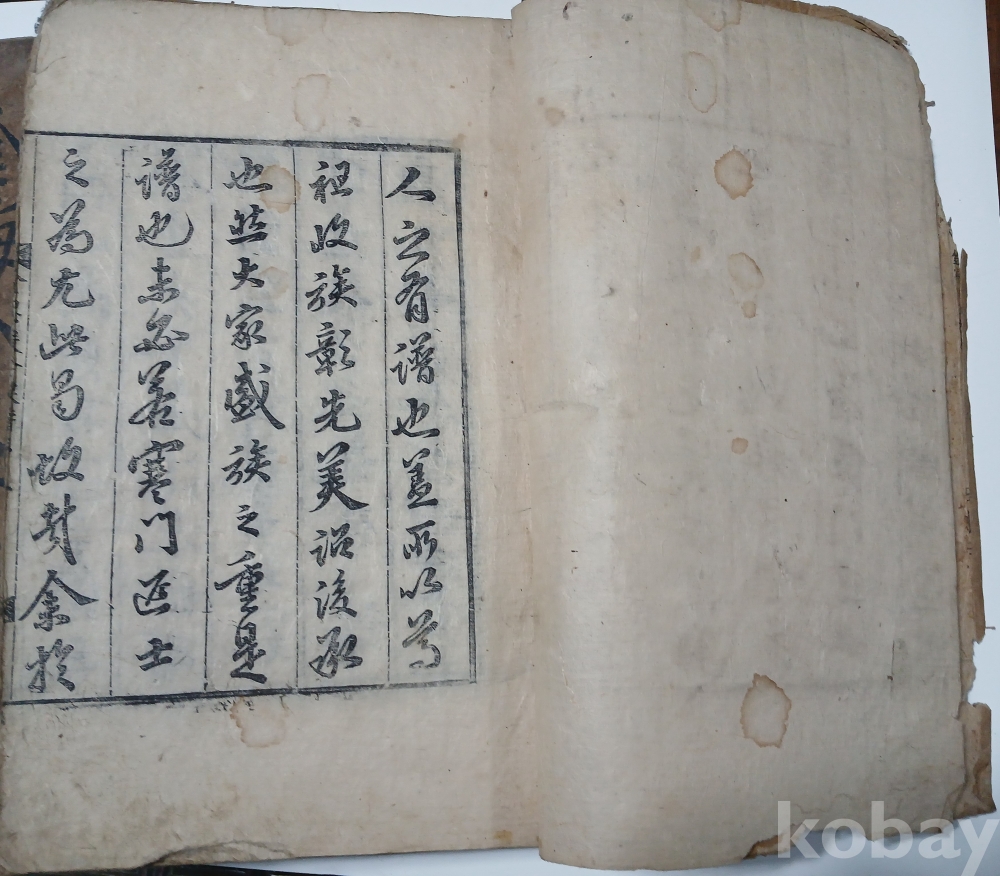 人之有譜也蓋所以尊
祖收族彰先美詔後承
也然大家盛族之重是
譜也未必若寒門匹士
之為尤此曷故哉余於
kobay